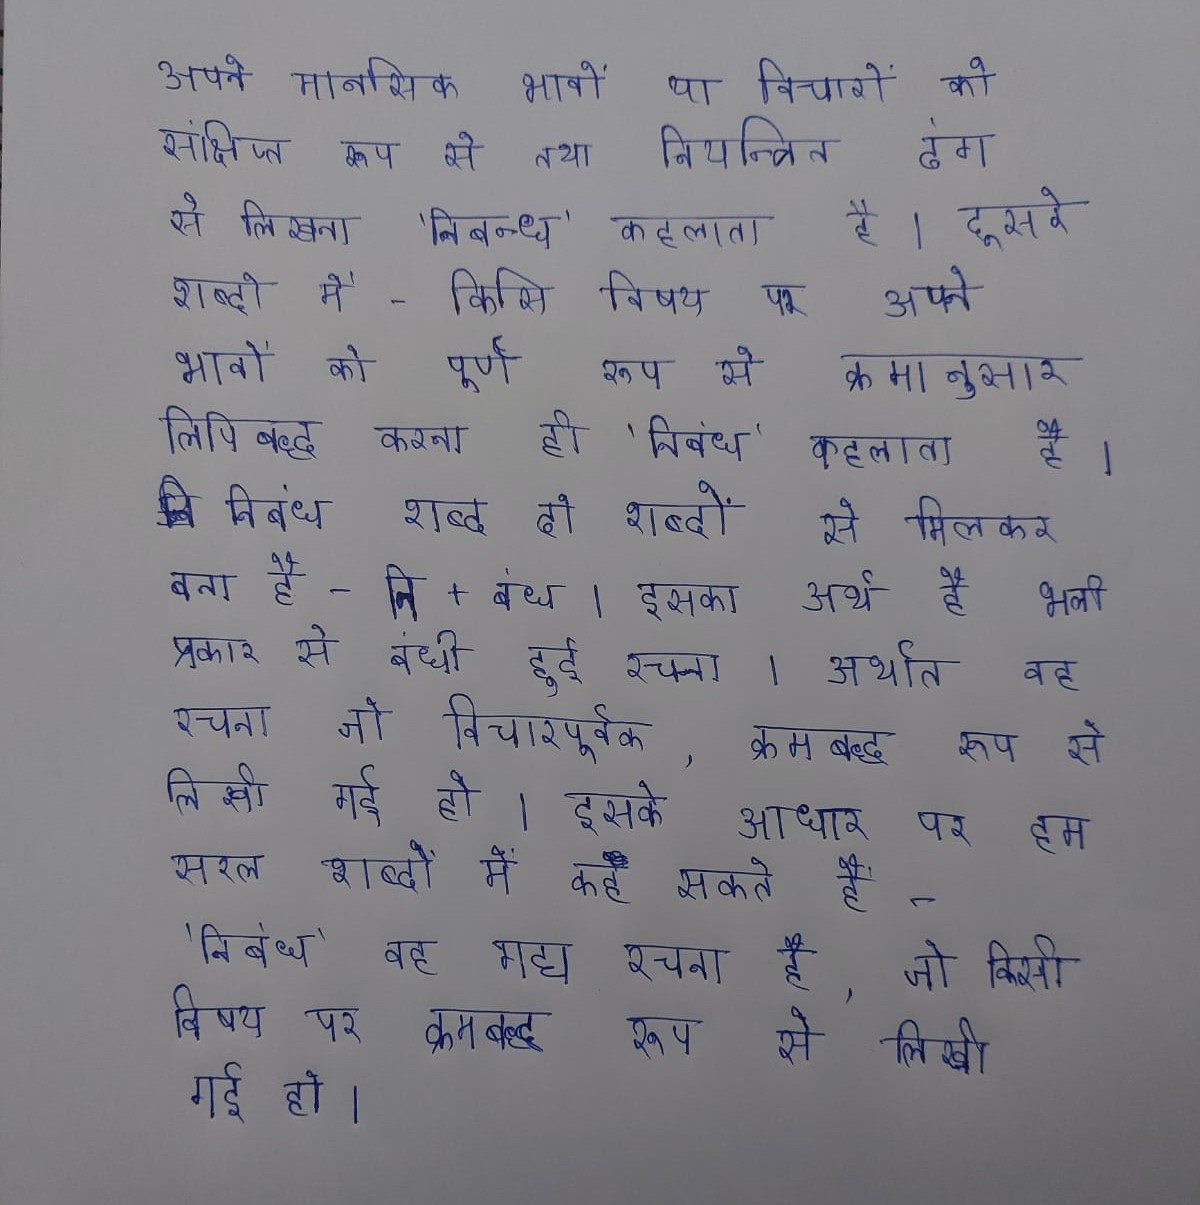 अपने मानसिक भावों या विचारों को
संक्षिप्त रूप से तथा नियन्त्रित ढंग
से लिखना 'निबन्ध' कहलाता है । दूसरे
शब्दो में - किसि विषय पर अपने
भावों को पूर्ण रूप से क्रमानुसार
लिपिबद्ध करना ही 'निबंध' कहलाता है ।
निबंध शब्द दो शब्दों से मिलकर
बना है - नि + बंध । इसका अर्थ है भली
प्रकार से बंधी हुई रचना । अर्थात वह
रचना जो विचारपूर्वक , क्रमबद्ध रूप से
लिखी गई हो । इसके आधार पर हम
सरल शब्दों में कह सकते हैं -
'निबंध' वह गद्य रचना है , जो किसी
विषय पर क्रमबद्ध रूप से लिखी
गई हो ।